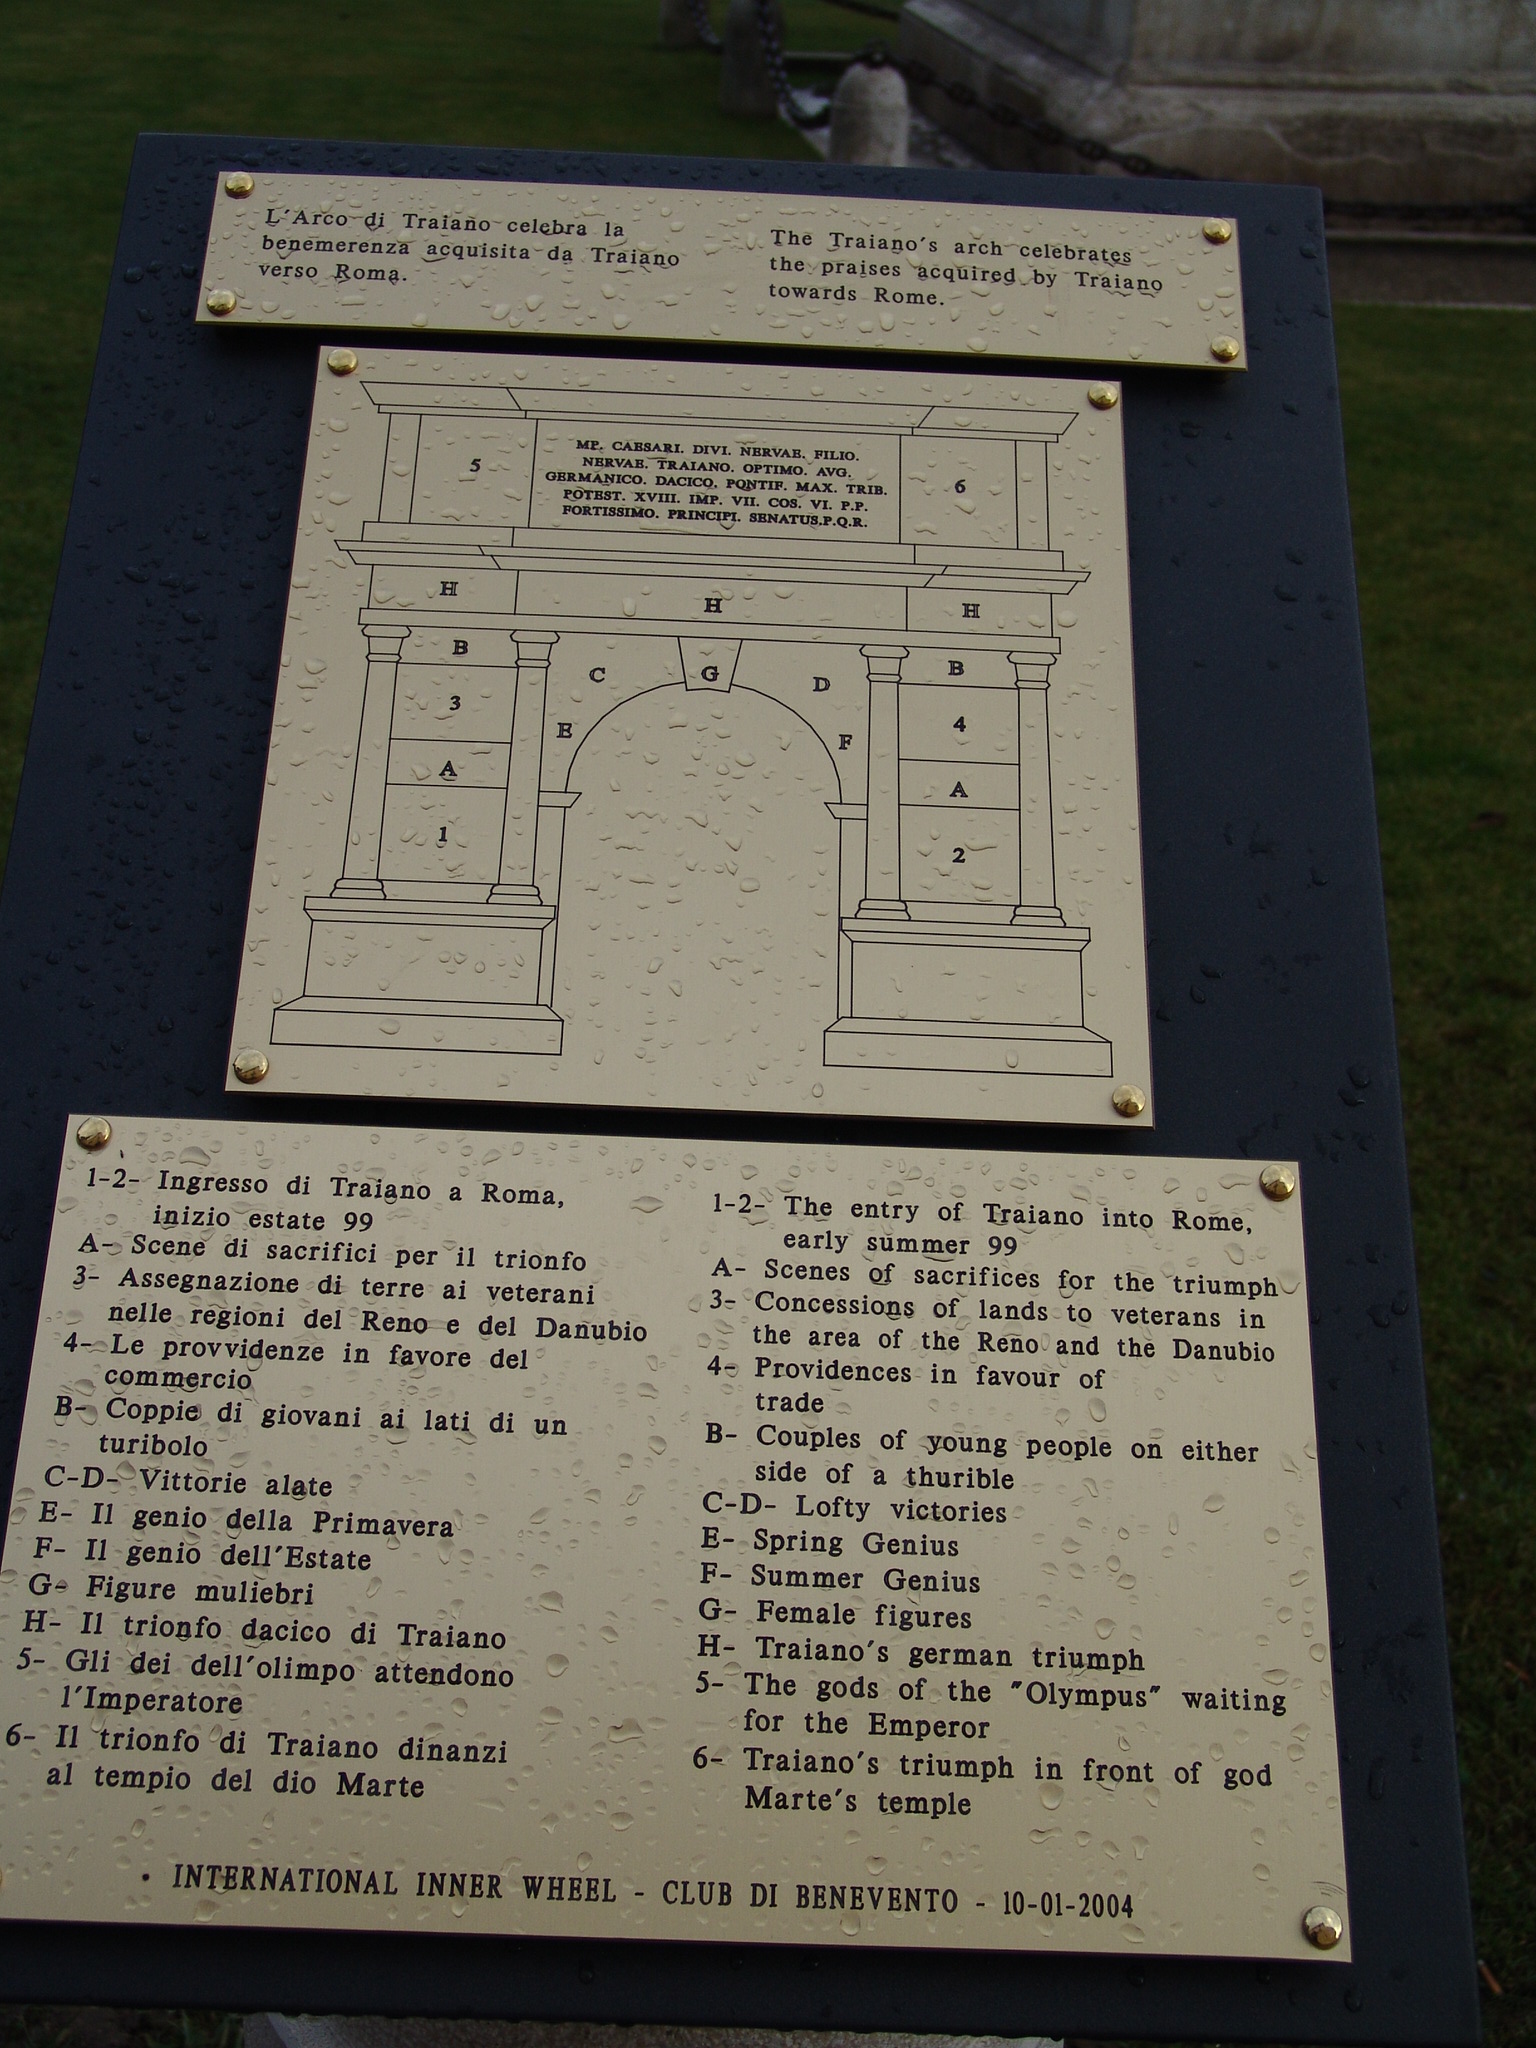 L'Arco di Traiano celebra la
benemerenza acquisita da Traiano
verso Roma.
The Traiano's arch celebrates
the praises acquired by Traiano
towards Rome.
MP. CAESARI. DIVI. NERVAE. FILIO.
NERVAE. TRAIANO. OPTIMO. AVG.
GERMANICO. DACICO. PONTIF. MAX. TRIB.
POTEST. XVIII. IMP. VII. COS. VI. P.P.
FORTISSIMO. PRINCIPI. SENATUS.P.Q.R.
5
6
H
H
H
B
C
G
D
B
3
E
F
4
A
A
1
2
1-2- Ingresso di Traiano a Roma,
inizio estate 99
A- Scene di sacrifici per il trionfo
3- Assegnazione di terre ai veterani
nelle regioni del Reno e del Danubio
4- Le provvidenze in favore del
commercio
B- Coppie di giovani ai lati di un
turibolo
C-D- Vittorie alate
E- Il genio della Primavera
F- Il genio dell'Estate
G- Figure muliebri
H- Il trionfo dacico di Traiano
5- Gli dei dell'olimpo attendono
l'Imperatore
6- Il trionfo di Traiano dinanzi
al tempio del dio Marte
1-2- The entry of Traiano into Rome,
early summer 99
A- Scenes of sacrifices for the triumph
3- Concessions of lands to veterans in
the area of the Reno and the Danubio
4- Providences in favour of
trade
B- Couples of young people on either
side of a thurible
C-D- Lofty victories
E- Spring Genius
F- Summer Genius
G- Female figures
H- Traiano's german triumph
5- The gods of the "Olympus" waiting
for the Emperor
6- Traiano's triumph in front of god
Marte's temple
• INTERNATIONAL INNER WHEEL - CLUB DI BENEVENTO - 10-01-2004